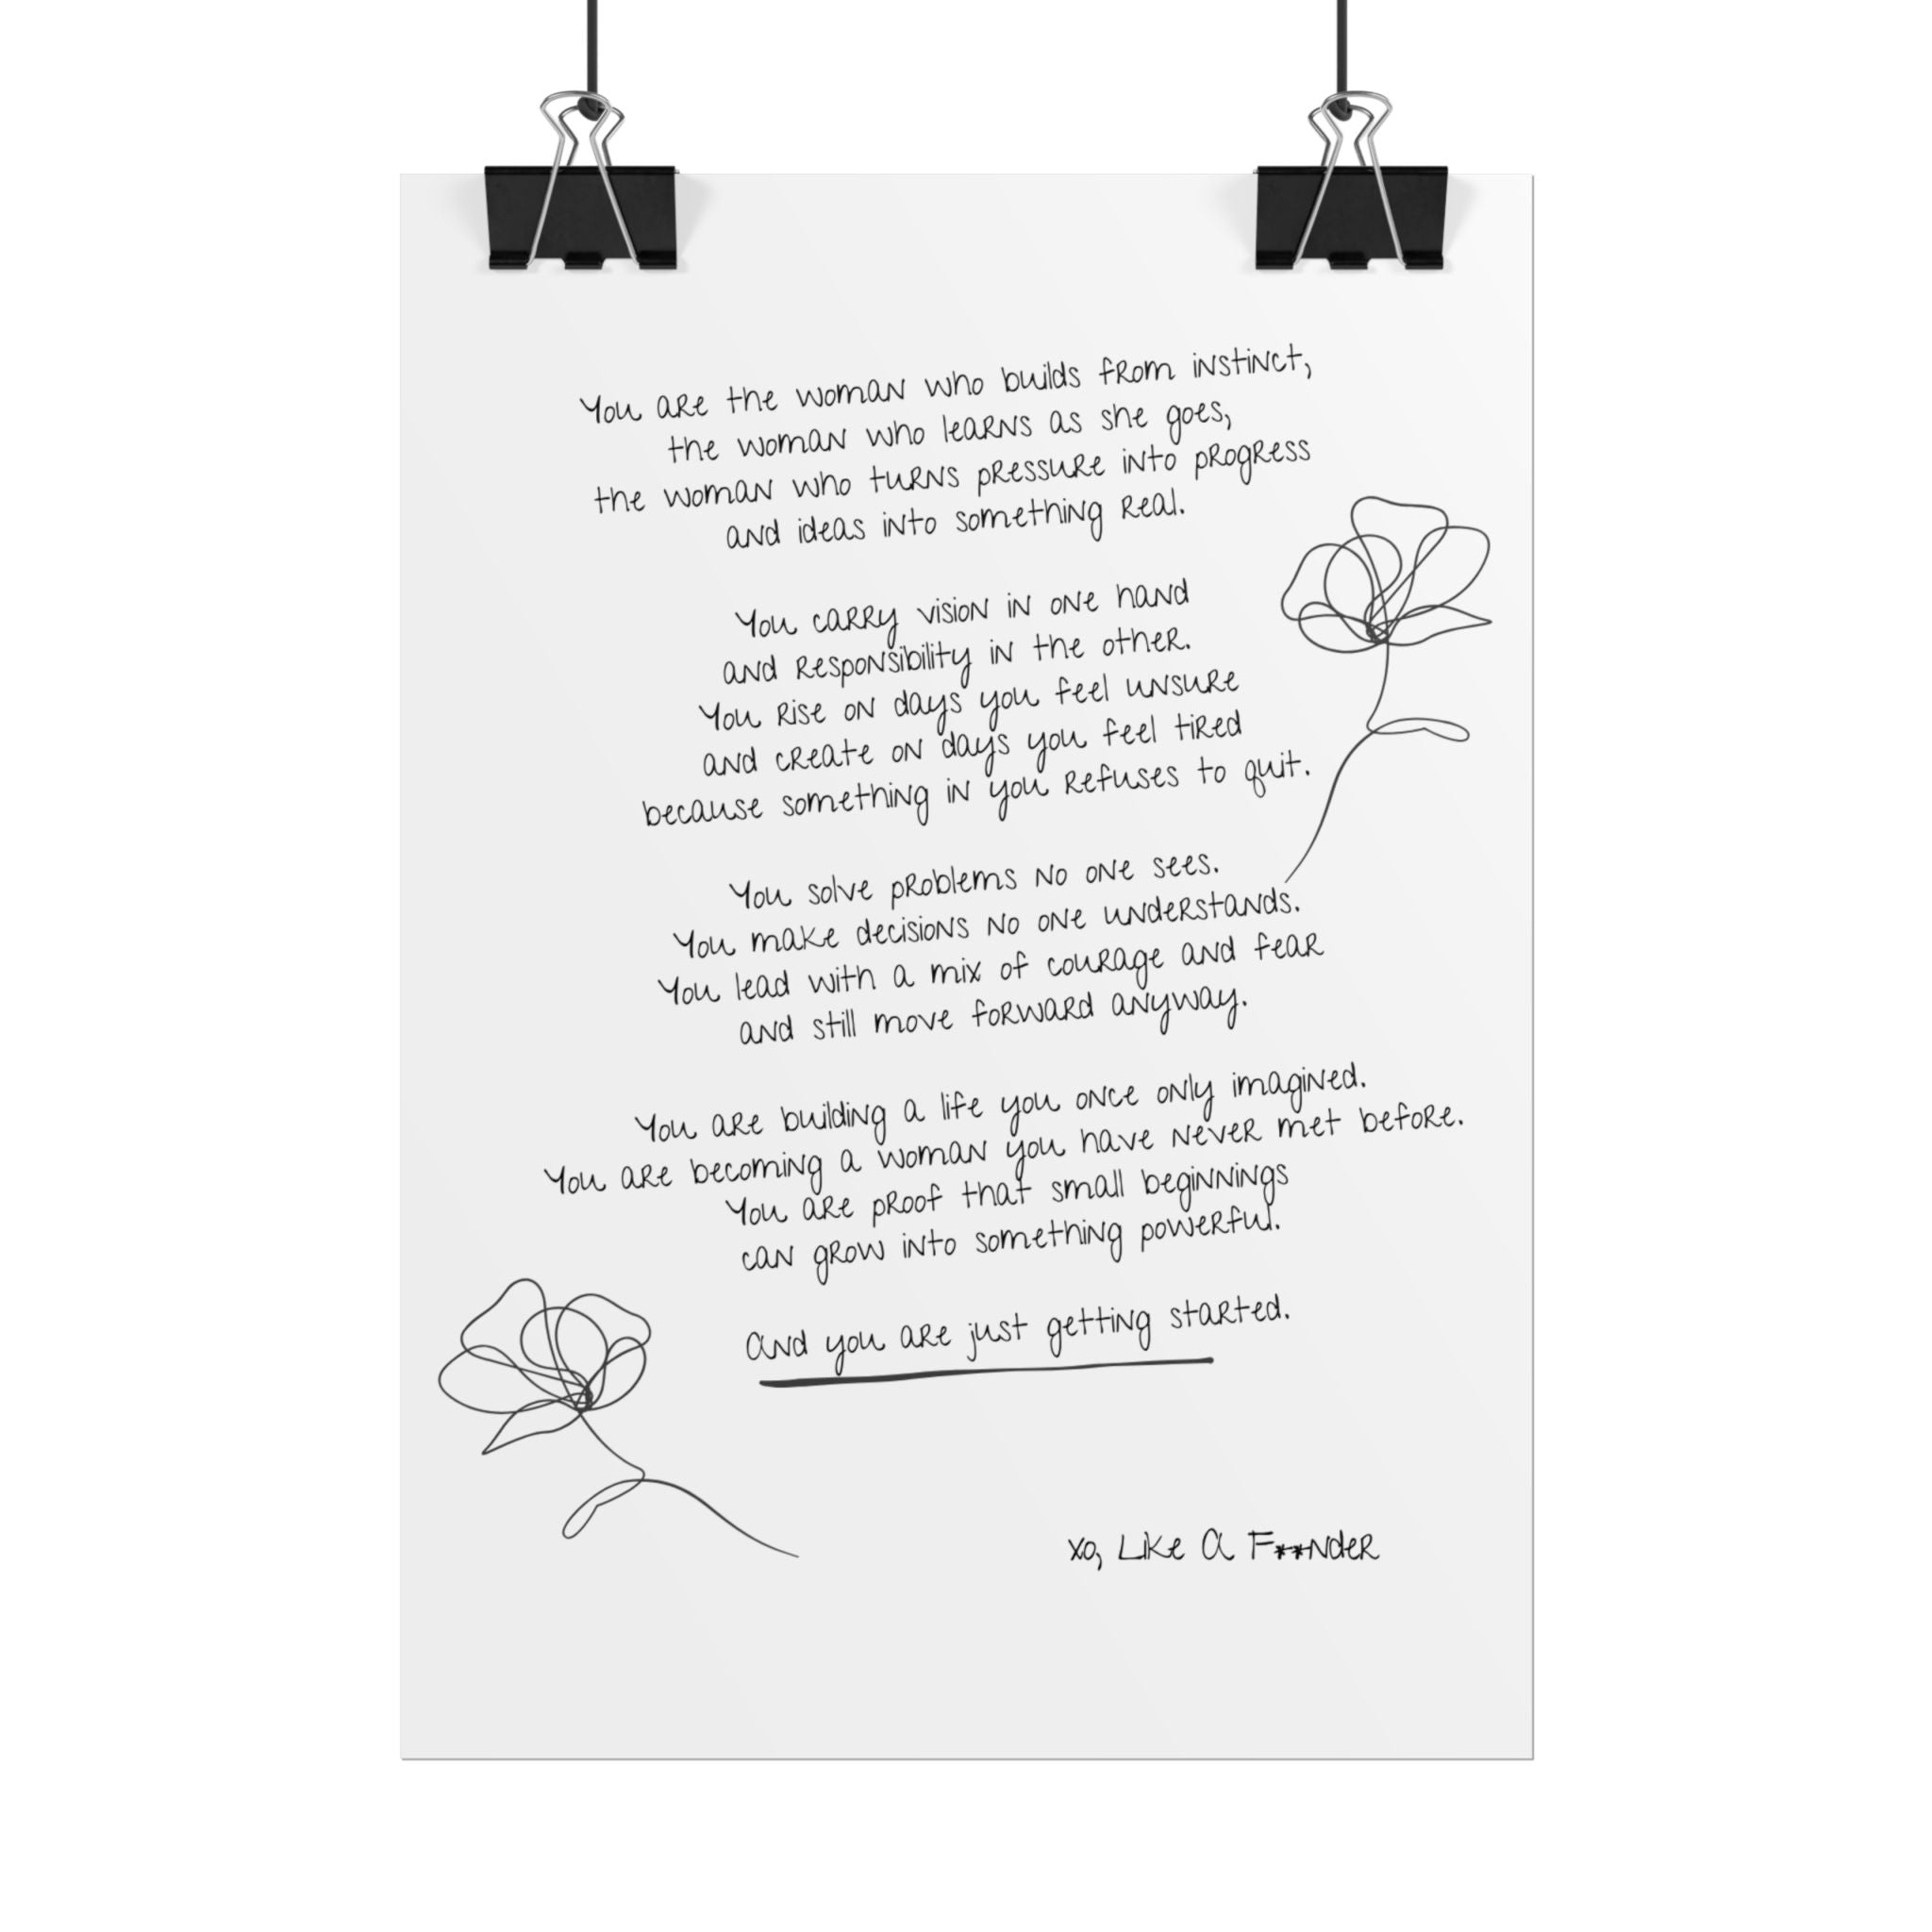 You are the woman who builds from instinct,
the woman who learns as she goes,
the woman who turns pressure into progress
and ideas into something real.
You carry vision in one hand
and responsibility in the other.
You rise on days you feel unsure
and create on days you feel tired
because something in you refuses to quit.
You solve problems no one sees.
You make decisions no one understands.
You lead with a mix of courage and fear
and still move forward anyway.
You are building a life you once only imagined.
You are becoming a woman you have never met before.
You are proof that small beginnings
can grow into something powerful.
And you are just getting started.
xo, Like A F**nder